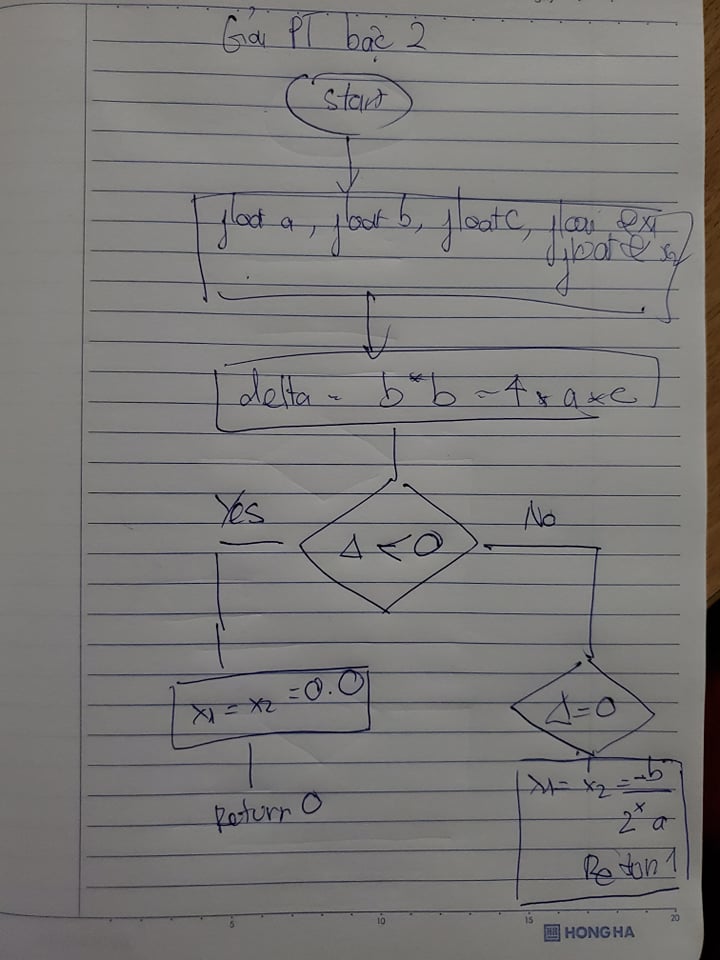 Giải PT bậc 2
Start
float a, float b, float c, float &x1
float & x2
delta = b*b - 4*a*c
Yes
Δ < 0
No
x1 = x2 = 0.0
Δ = 0
Return 0
x1 = x2 = -b
2*a
Return 1
5 10 15 20
HONG HA